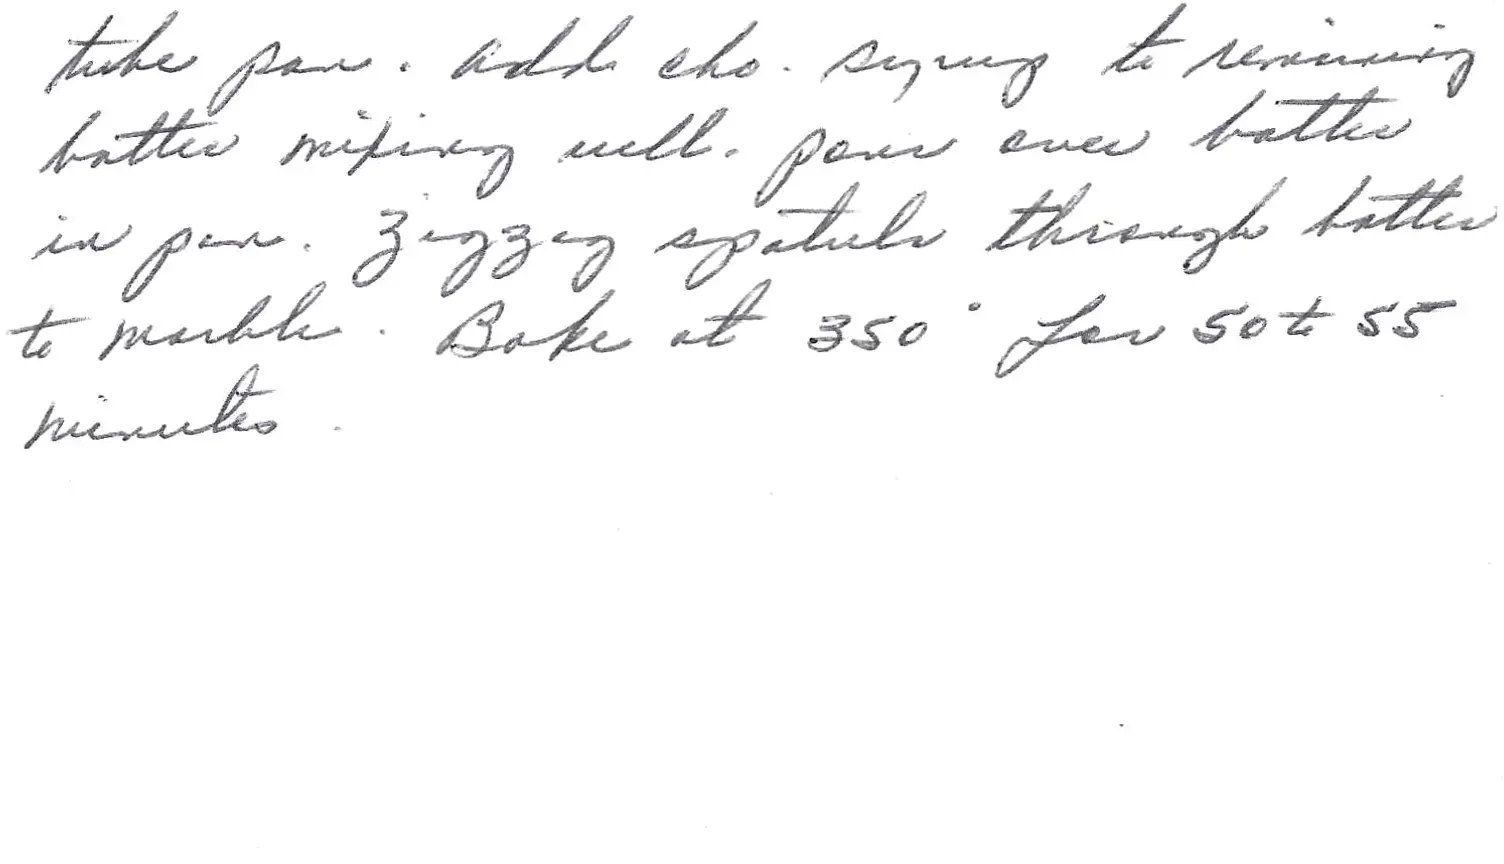 tube pan. Add cho. syrup to remaining
batter mixing well. pour over batter
in pan. Zigzag spatula through batter
to marble. Bake at 350° for 50 to 55
minutes.